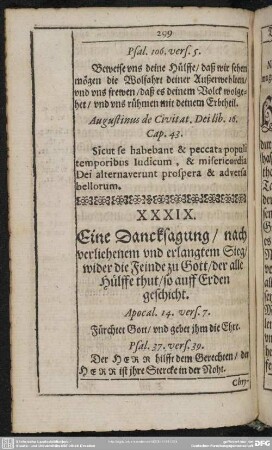 299
Psal. 106. vers. 5.
Beweise vns deine Hülffe / daß wir sehen
mögen die Wolfahrt deiner Außerwehlten /
vnd vns frewen / daß es deinem Volck wolge-
het / vnd vns rühmen mit deinem Erbtheil.
Augustinus de Civitat. Dei lib. 18.
Cap. 43.
Sicut se habebant & peccata populi
temporibus Iudicum, & misericordia
Dei alternaverunt prospera & adversa
bellorum.
XXXIX.
Eine Dancksagung / nach
verliehenem vnd erlangtem Sieg /
wider die Feinde zu Gott / der alle
Hülffe thut / so auff Erden
geschicht.
Apocal. 14. vers. 7.
Fürchtet Gott / vnd gebet jhm die Ehre.
Psal. 37. vers. 39.
Der HERR hilfft dem Gerechten / der
HERR ist jhre Stercke in der Noht.